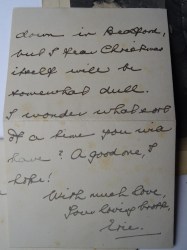 down in Bedford,
but I fear Christmas
itself will be
somewhat dull.
I wonder what sort
of a time you will
have? A good one, I
hope!
With much love,
Your loving
Eric.